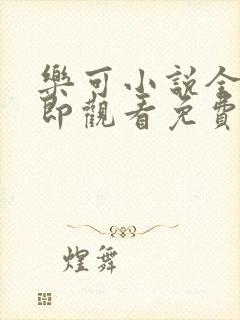 樂可小説全
即觀看免費
煌舞